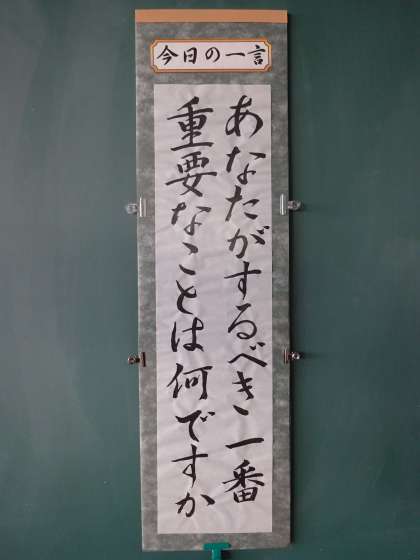 今日の一言
あなたがするべき一番
重要なことは何ですか